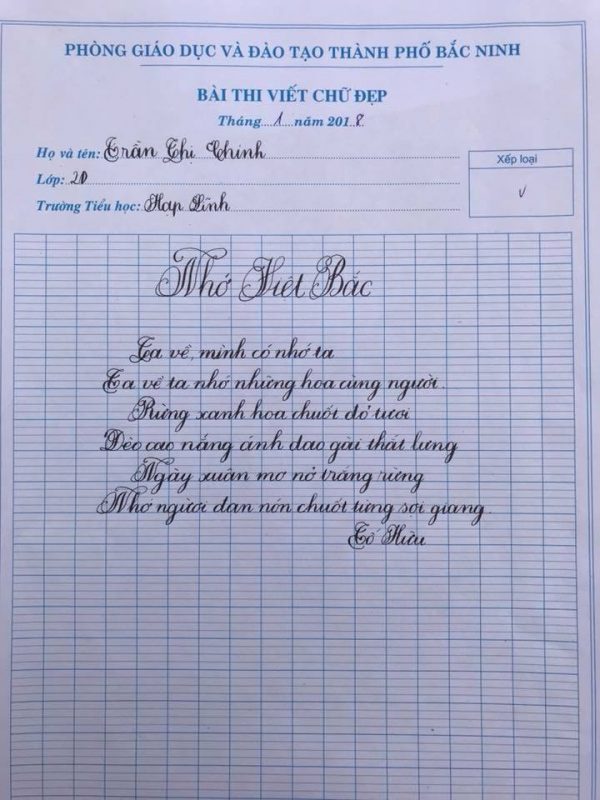 PHÒNG GIÁO DỤC VÀ ĐÀO TẠO THÀNH PHỐ BẮC NINH
BÀI THI VIẾT CHỮ ĐẸP
Tháng....1....năm 2018.
Họ và tên: Trần Thị Chinh
Xếp loại
Lớp: 2D
V
Trường Tiểu học: Hạp Lĩnh
Nhớ Việt Bắc
Ta về, mình có nhớ ta
Ta về ta nhớ những hoa cùng người.
Rừng xanh hoa chuối đỏ tươi
Đèo cao nắng ánh dao gài thắt lưng
Ngày xuân mơ nở trắng rừng
Nhớ người đan nón chuốt từng sợi giang.
Tố Hữu